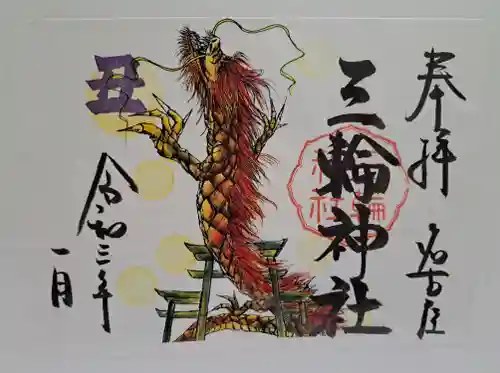 奉拝 名古屋
三輪神社
丑
令和三年
一月